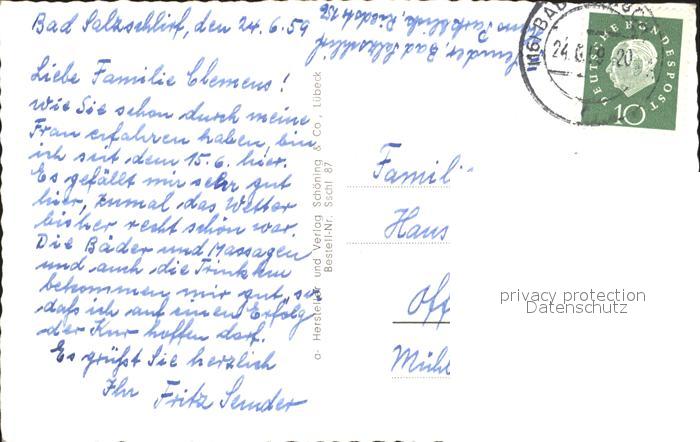 Bad Salzschlirf, den 24.6.59
Liebe Familie Clemens!
Wie Sie schon durch meine
Frau erfahren haben, bin
ich seit dem 15.6. hier.
Es gefällt mir sehr gut
hier, zumal das Wetter
bisher recht schön war.
Die Bäder und Massagen
und auch die Trinkkur
bekommen mir gut, so
daß ich auf einen Erfolg
der Kur hoffen darf.
Es grüßt Sie herzlich
Ihr Fritz Sender
Sender, Bad Salzschlirf,
a- Hersteller und Verlag Schöning & Co., Lübeck
Bestell-Nr. Sschl 87
(16) BAD
24.6.59.-20
DEUTSCHE BUNDESPOST
10
Famili
Haus
Off
Mühl
privacy protection
Datenschutz